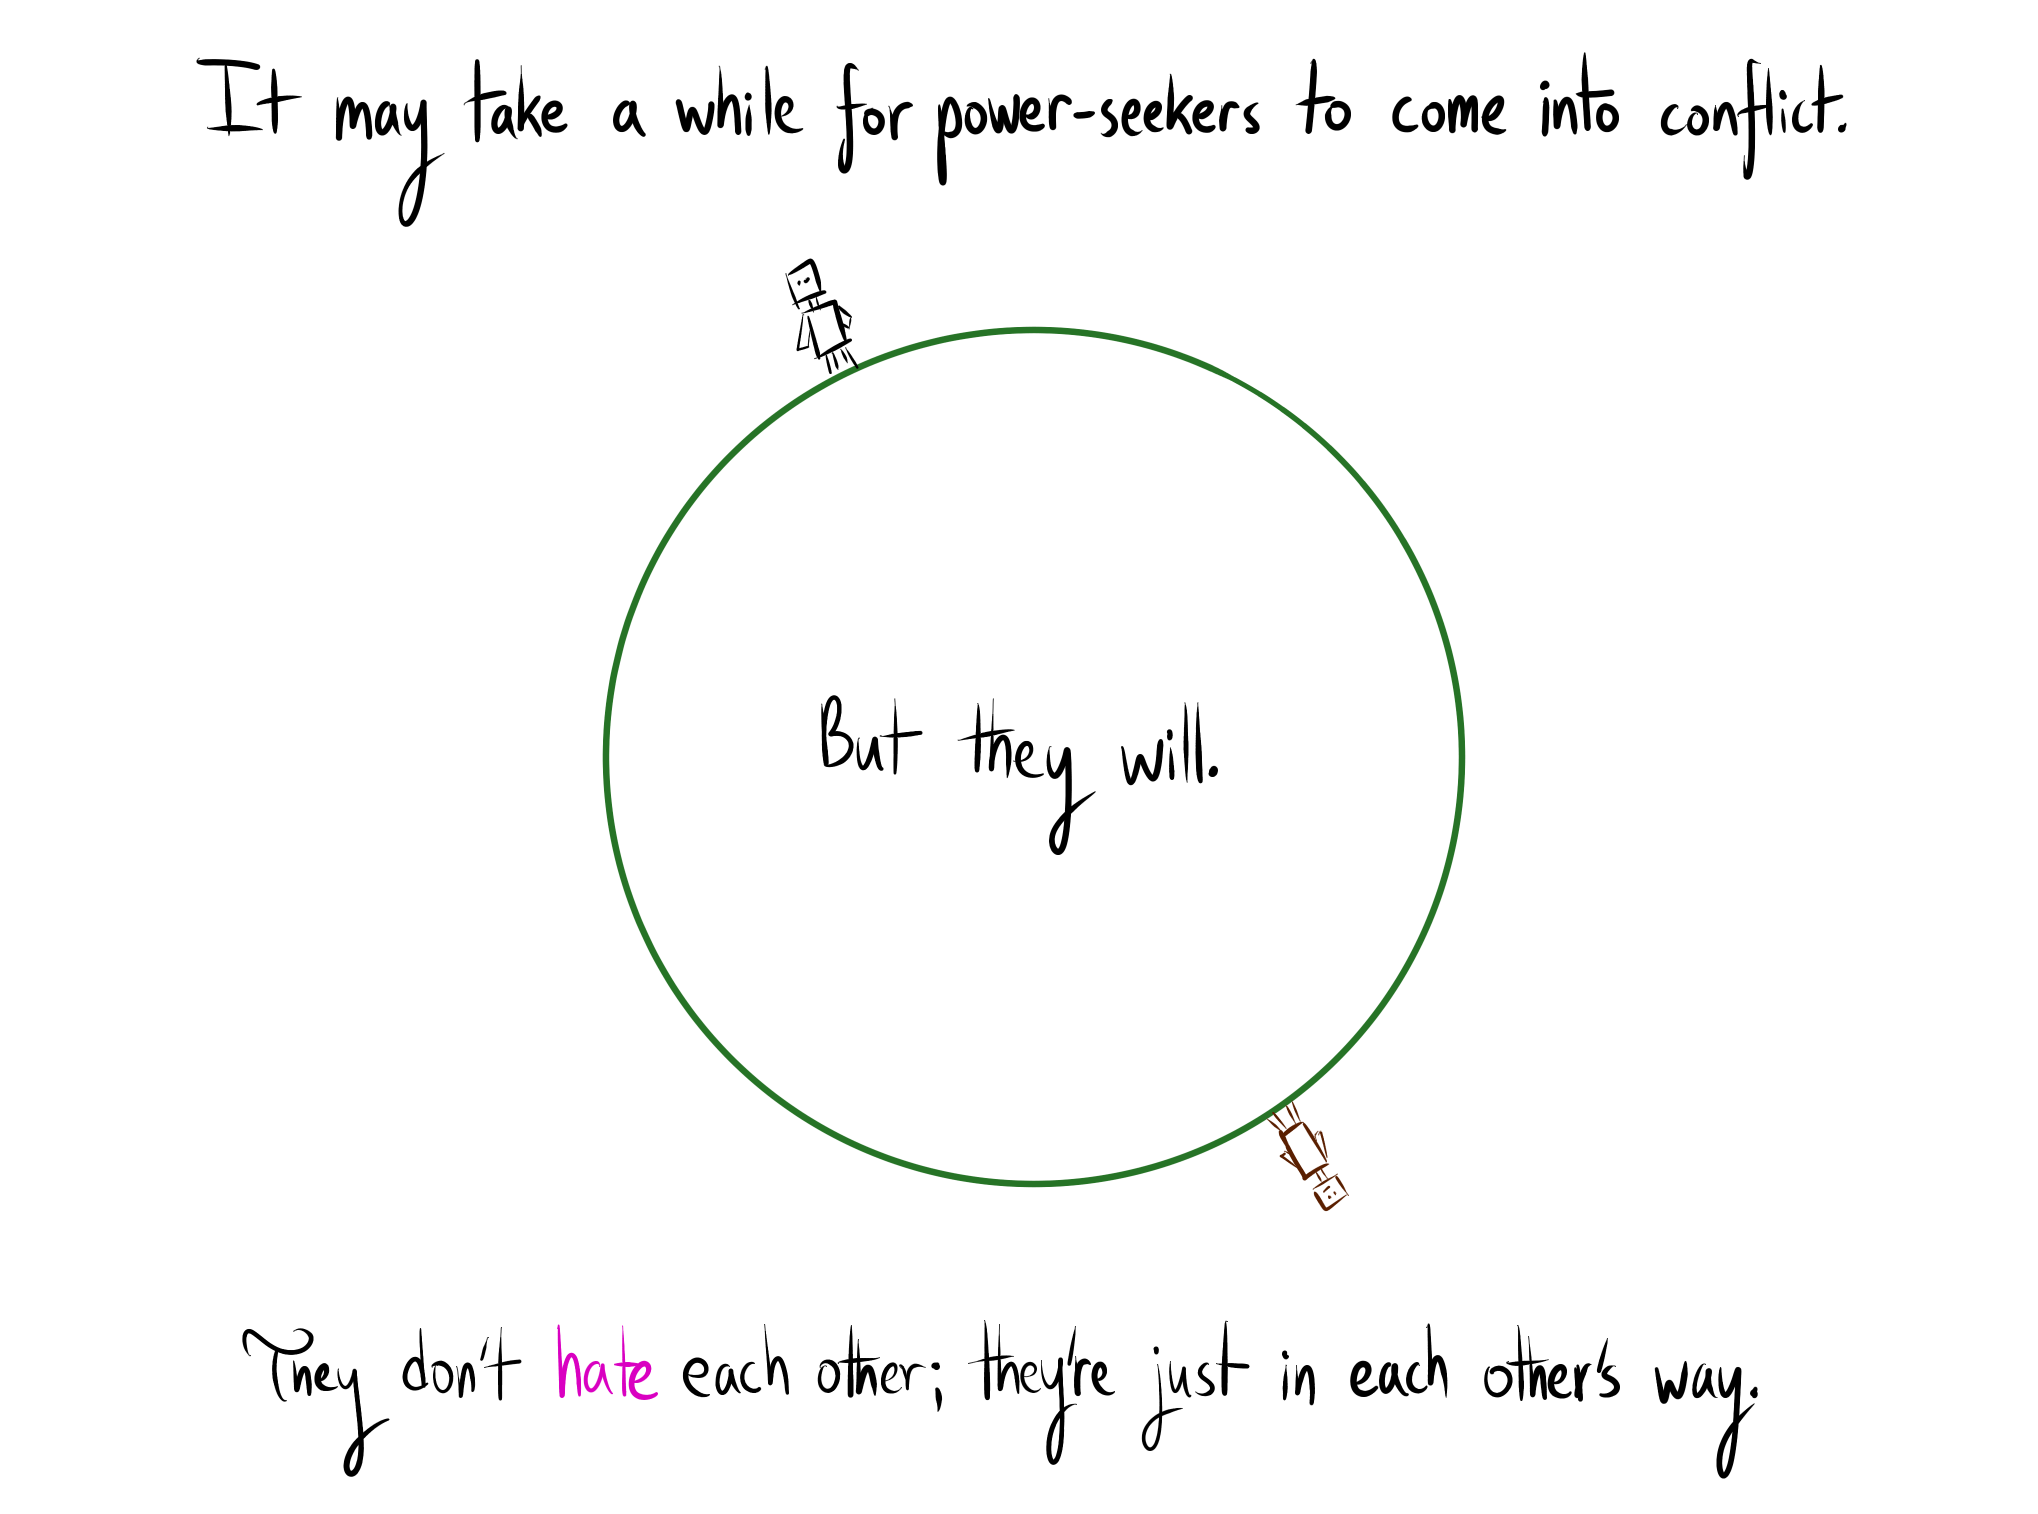 It may take a while for power-seekers to come into conflict.
But they will.
They don't hate each other; they're just in each other's way.